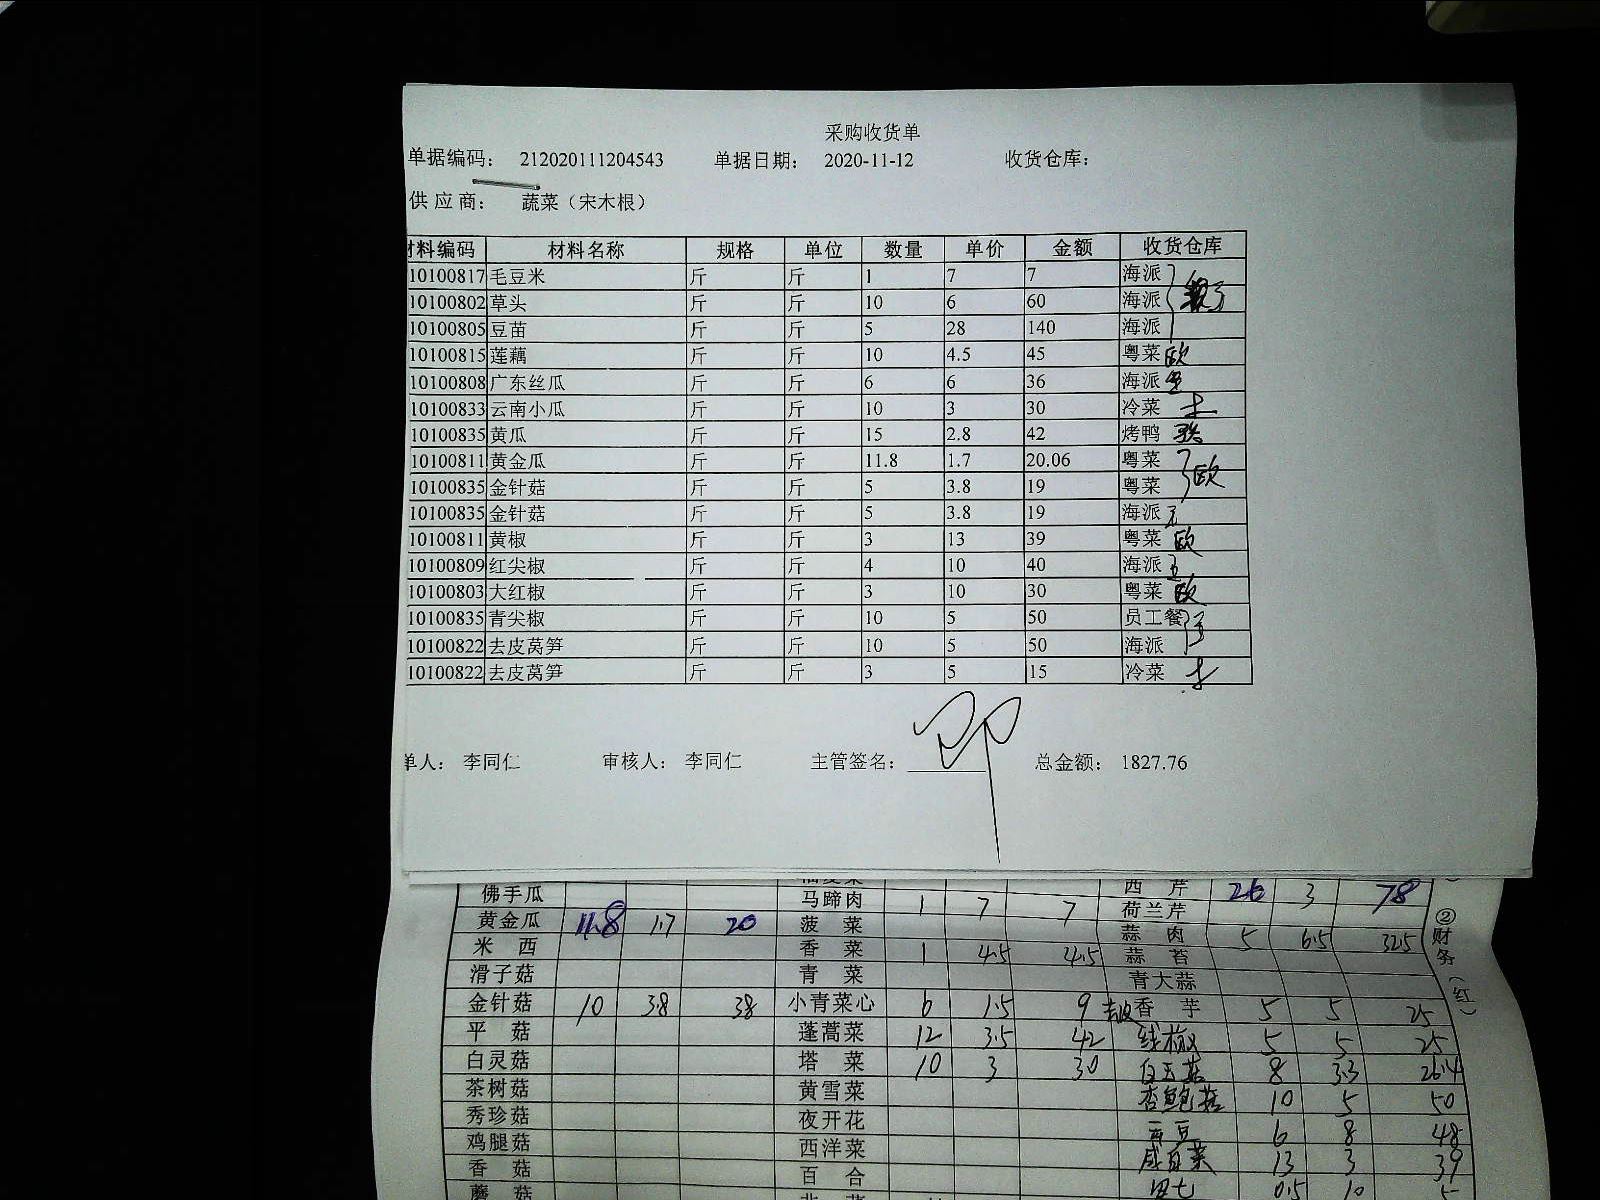 采购收货单
单据编码： 212020111204543 单据日期： 2020-11-12 收货仓库：
供应商： 蔬菜（宋木根）
材料编码 材料名称 规格 单位 数量 单价 金额 收货仓库
10100817 毛豆米 斤 斤 1 7 7 海派
10100802 草头 斤 斤 10 6 60 海派
10100805 豆苗 斤 斤 5 28 140 海派
10100815 莲藕 斤 斤 10 4.5 45 粤菜 欧
10100808 广东丝瓜 斤 斤 6 6 36 海派
10100833 云南小瓜 斤 斤 10 3 30 冷菜
10100835 黄瓜 斤 斤 15 2.8 42 烤鸭
10100811 黄金瓜 斤 斤 11.8 1.7 20.06 粤菜 欧
10100835 金针菇 斤 斤 5 3.8 19 粤菜
10100835 金针菇 斤 斤 5 3.8 19 海派
10100811 黄椒 斤 斤 3 13 39 粤菜 欧
10100809 红尖椒 斤 斤 4 10 40 海派
10100803 大红椒 斤 斤 3 10 30 粤菜 欧
10100835 青尖椒 斤 斤 10 5 50 员工餐
10100822 去皮莴笋 斤 斤 10 5 50 海派
10100822 去皮莴笋 斤 斤 3 5 15 冷菜
单人： 李同仁 审核人： 李同仁 主管签名： 总金额： 1827.76
佛手瓜 马蹄肉 1 7 7 西芹 26 3 78
黄金瓜 11.8 1.7 20 菠菜 荷兰芹
米西 香菜 1 4.5 4.5 蒜肉 5 6.5 32.5
滑子菇 青菜 蒜苔
青大蒜
金针菇 10 3.8 38 小青菜心 6 1.5 9 去皮香芋 5 5 25
平菇 蓬蒿菜 12 3.5 42 线椒 5 5 25
白灵菇 塔菜 10 3 30 白玉菇 8 3.3 26.4
茶树菇 黄雪菜 杏鲍菇 10 5 50
秀珍菇 夜开花 6 8 48
鸡腿菇 西洋菜 13 3 39
香菇 百合 0.5 10 5
蘑菇
②财务（红）